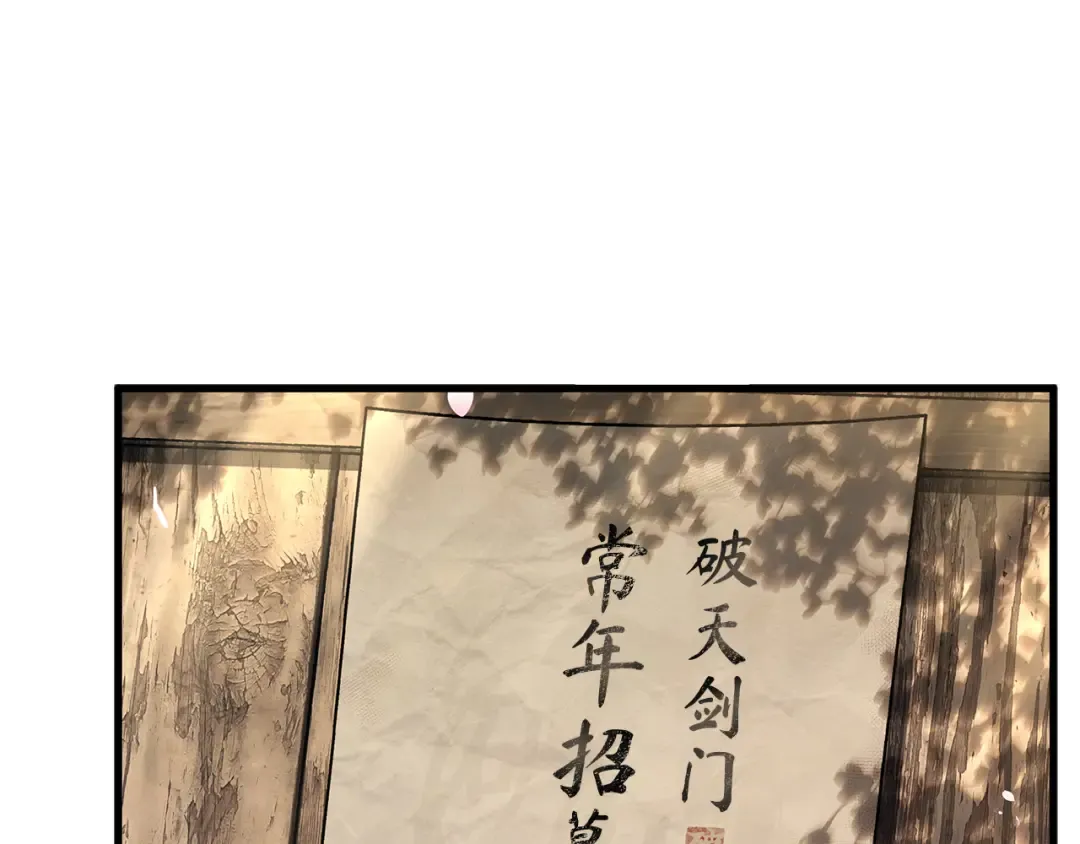 破天剑门
常年招募